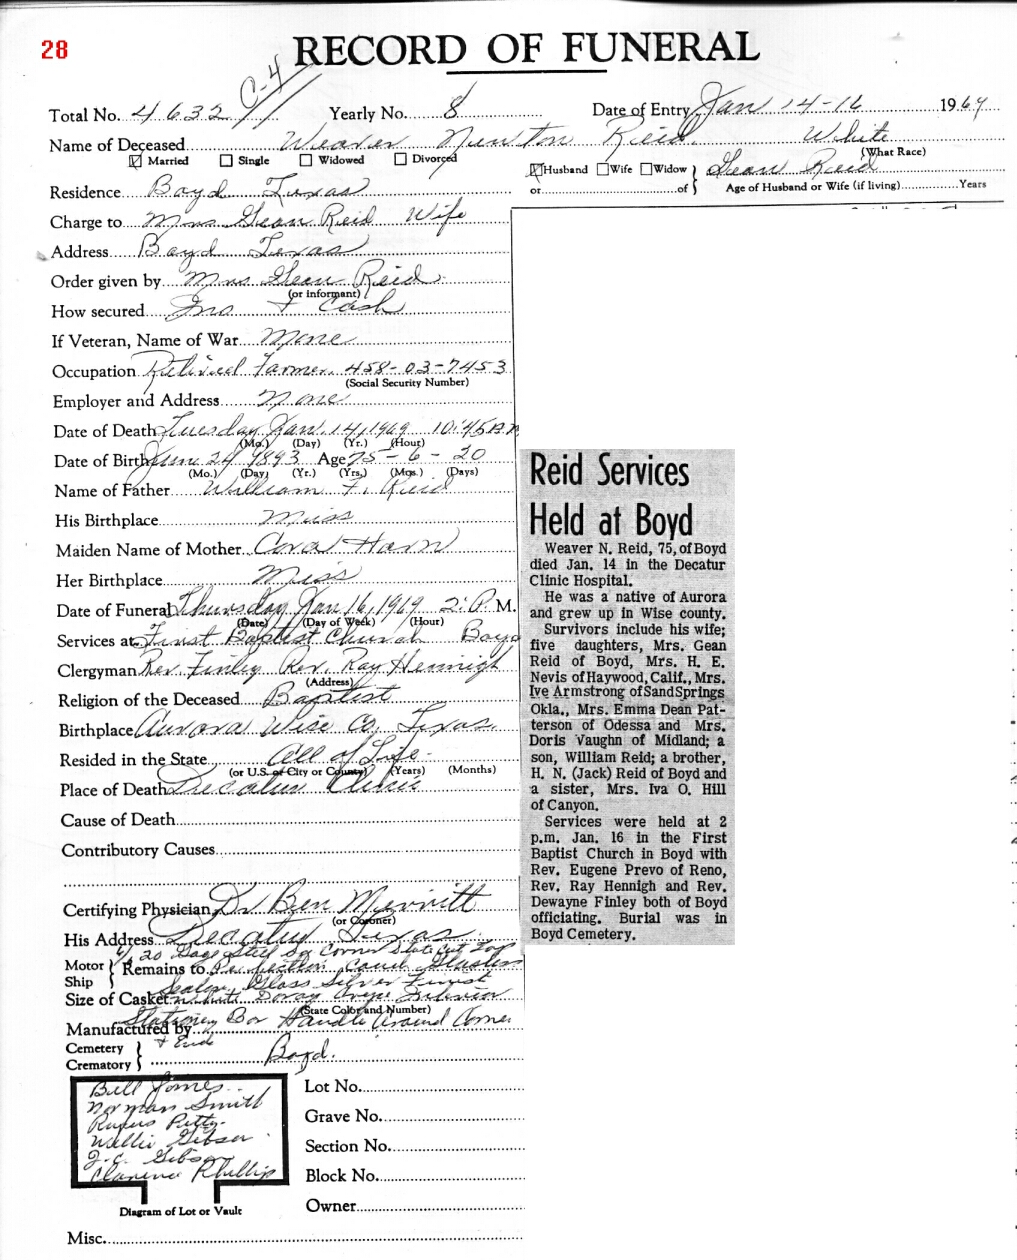 28
RECORD OF FUNERAL
C-4
Total No. 4632 Yearly No. 8 Date of Entry Jan 14-16 1969
Name of Deceased Weaver Newton Reid. White
Married Single Widowed Divorced (What Race)
Husband Wife Widow Gean Reid
or of Age of Husband or Wife (if living) Years
Residence Boyd Texas
Charge to Mrs Gean Reid Wife
Address Boyd Texas
Order given by Mrs Gean Reid
(or informant)
How secured Ins + Cash
If Veteran, Name of War None
Occupation Retired Farmer 458-03-7453
(Social Security Number)
Employer and Address None
Date of Death Tuesday Jan 14, 1969 10:45
(Mo.) (Day) (Yr.) (Hour)
Date of Birth June 24 1893 Age 75-6-20
(Mo.) (Day) (Yr.) (Yrs.) (Mos.) (Days)
Name of Father William F. Reid
His Birthplace Miss
Maiden Name of Mother Cora Harn
Her Birthplace Miss
Date of Funeral Thursday Jan 16, 1969 2: P. M.
(Date) (Day of Week) (Hour)
Services at First Baptist Church Boyd
Clergyman Rev. Finley Rev. Ray Hennigh
(Address)
Religion of the Deceased Baptist
Birthplace Aurora Wise Co, Texas
Resided in the State All of Life
(or U.S. or City or County) (Years) (Months)
Place of Death Decatur Clinic
Cause of Death
Contributory Causes
Certifying Physician Dr Ben Merritt
(or Coroner)
His Address Decatur Texas
20 Gage Steel Sq Corner
Motor Ship Remains to
Sealer Gloss Silver Finish
Size of Casket Interior
(State Color and Number)
Stationary Bar Handle Around Corner
Manufactured by + Ends
Cemetery
Crematory Boyd.
Bill Jones
Norman Smith
Rufus Petty
Willie Gibson
J.C. Gibson
Clarence Phillips
Diagram of Lot or Vault
Lot No.
Grave No.
Section No.
Block No.
Owner
Misc.
Reid Services
Held at Boyd
Weaver N. Reid, 75, of Boyd
died Jan. 14 in the Decatur
Clinic Hospital.
He was a native of Aurora
and grew up in Wise county.
Survivors include his wife;
five daughters, Mrs. Gean
Reid of Boyd, Mrs. H. E.
Nevis of Haywood, Calif., Mrs.
Ive Armstrong of Sand Springs
Okla., Mrs. Emma Dean Pat-
terson of Odessa and Mrs.
Doris Vaughn of Midland; a
son, William Reid; a brother,
H. N. (Jack) Reid of Boyd and
a sister, Mrs. Iva O. Hill
of Canyon.
Services were held at 2
p.m. Jan. 16 in the First
Baptist Church in Boyd with
Rev. Eugene Prevo of Reno,
Rev. Ray Hennigh and Rev.
Dewayne Finley both of Boyd
officiating. Burial was in
Boyd Cemetery.